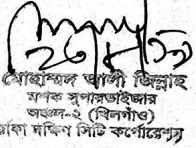 মোহাম্মদ আলী জিল্লাহ
মশক সুপারভাইজার
অঞ্চল-২ (খিলগাঁও)
ঢাকা দক্ষিণ সিটি কর্পোরেশন